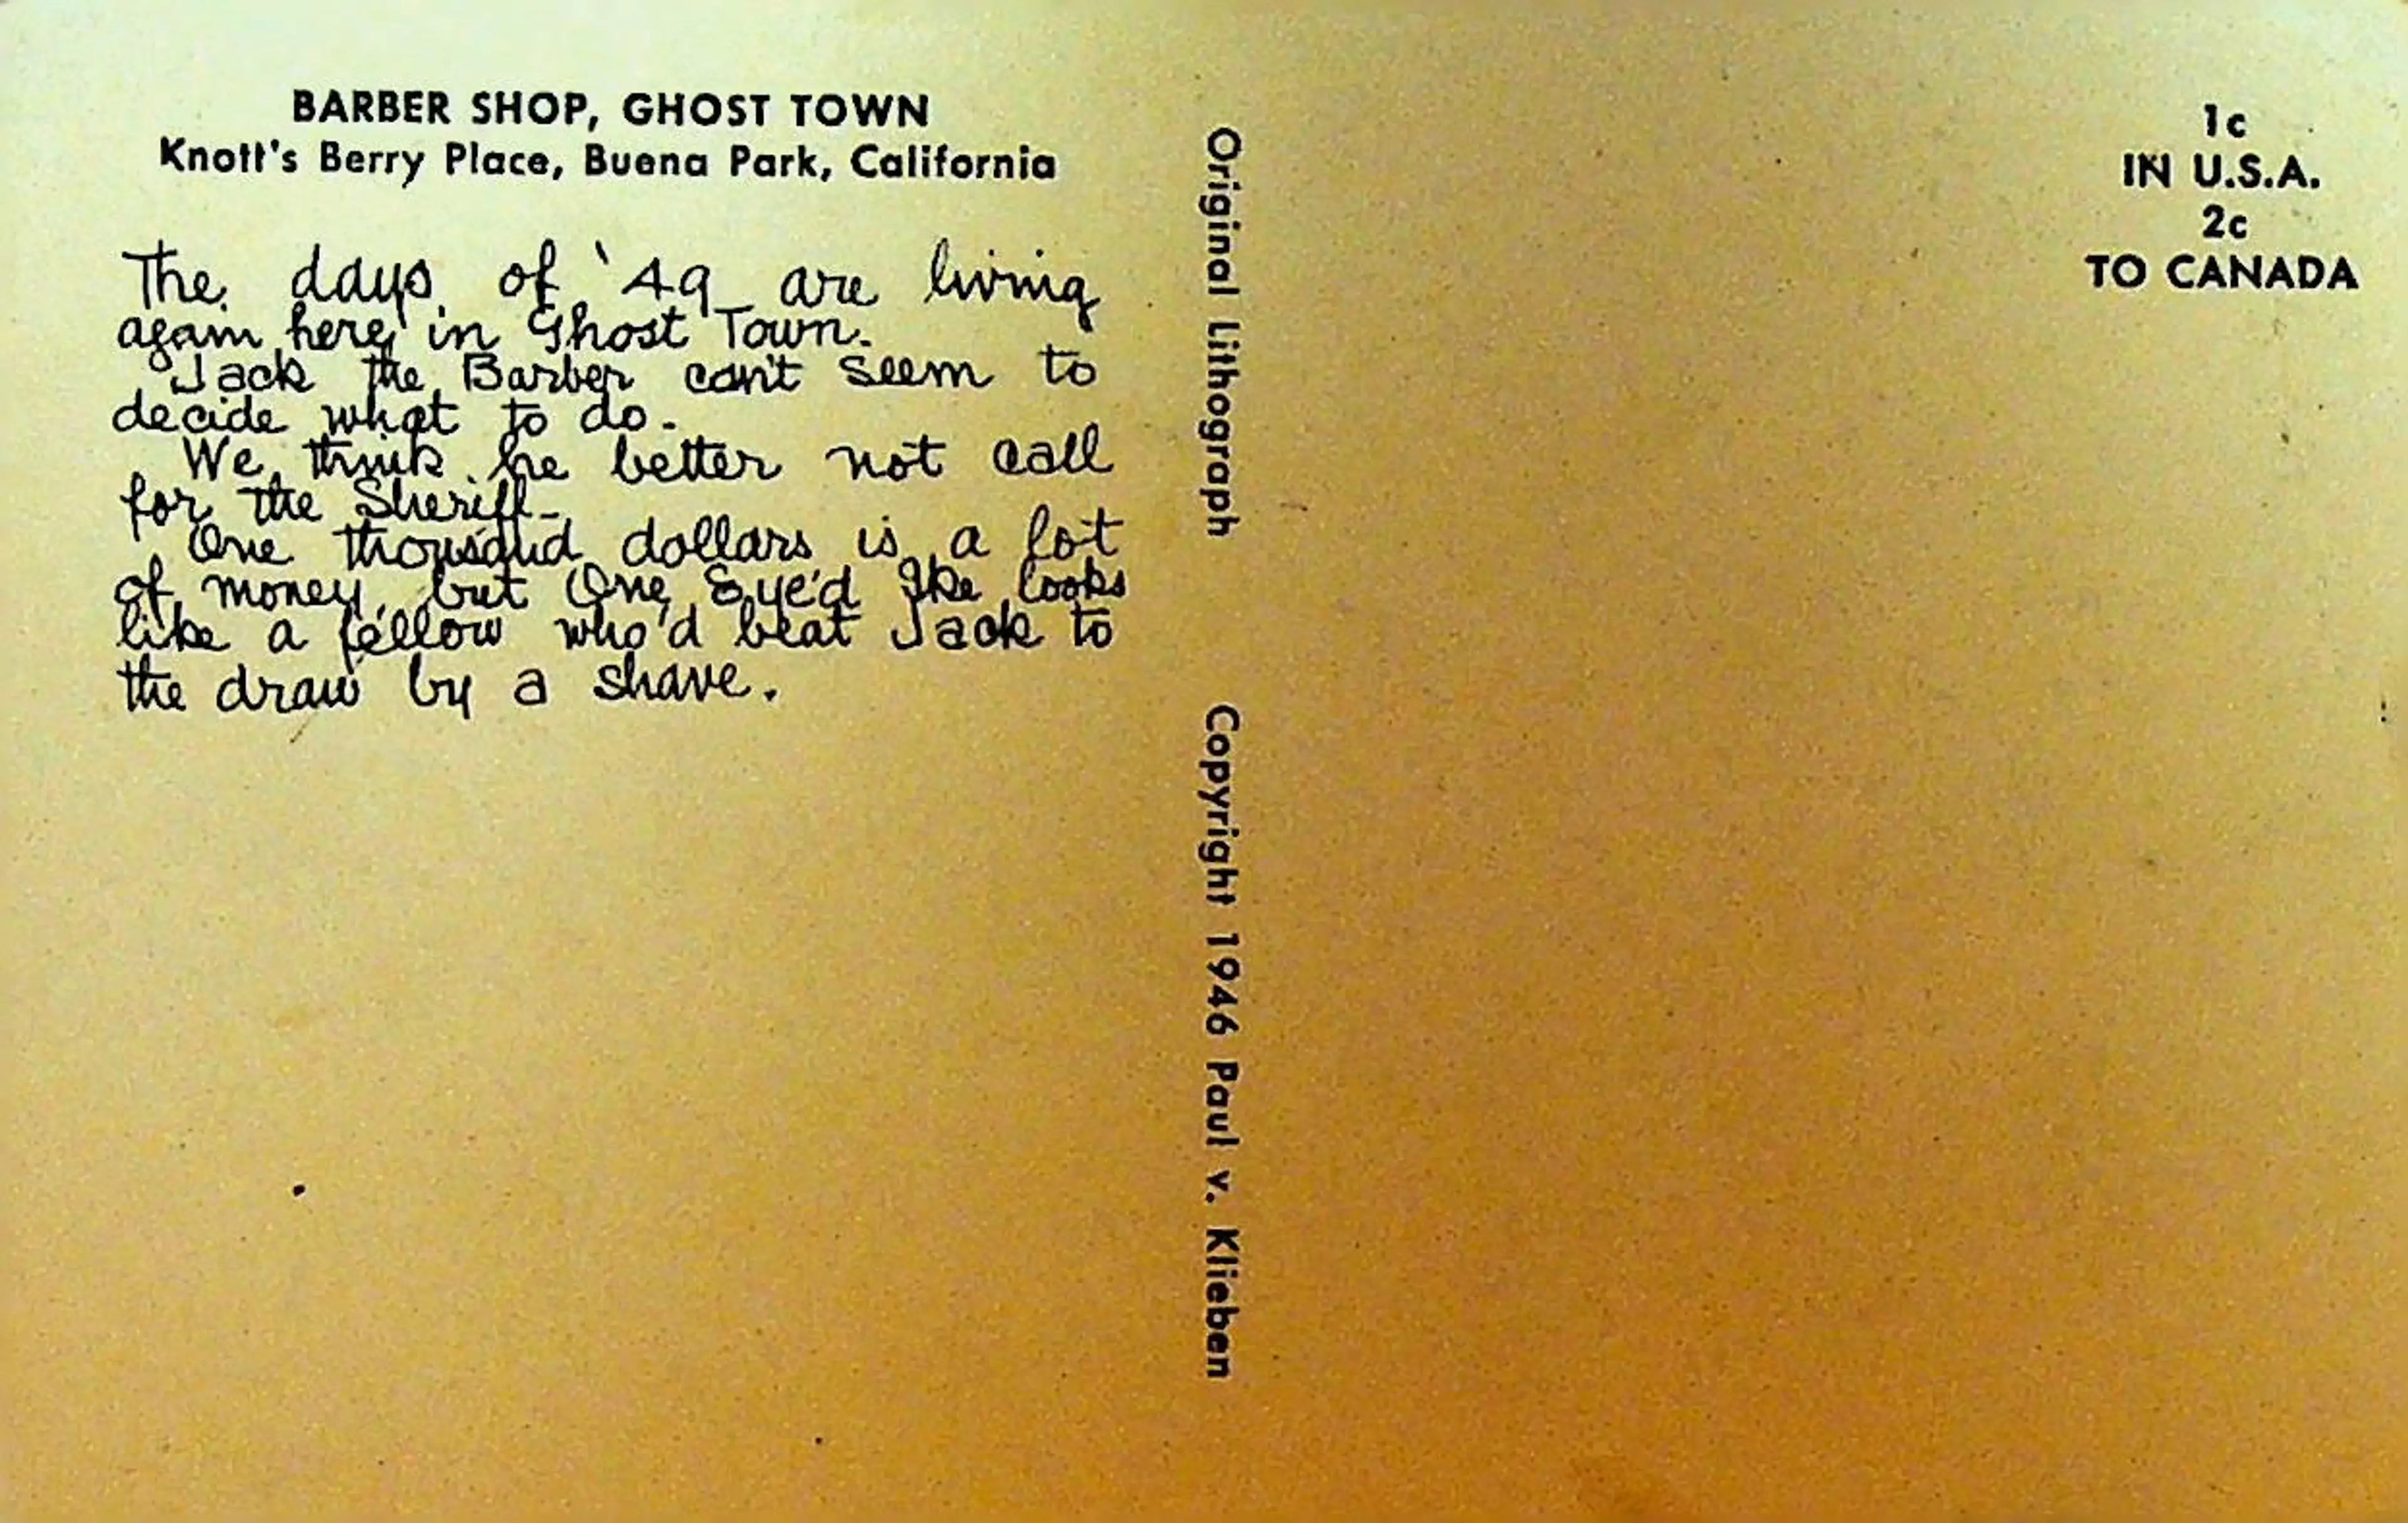 BARBER SHOP, GHOST TOWN
Knott's Berry Place, Buena Park, California
The days of '49 are living
again here in Ghost Town.
Jack the Barber can't seem to
decide what to do.
We think he better not call
for the Sheriff-
One thousand dollars is a lot
of money, but One Eye'd Ike looks
like a fellow who'd beat Jack to
the draw by a shave.
Original Lithograph Copyright 1946 Paul v. Klieben
1c
IN U.S.A.
2c
TO CANADA